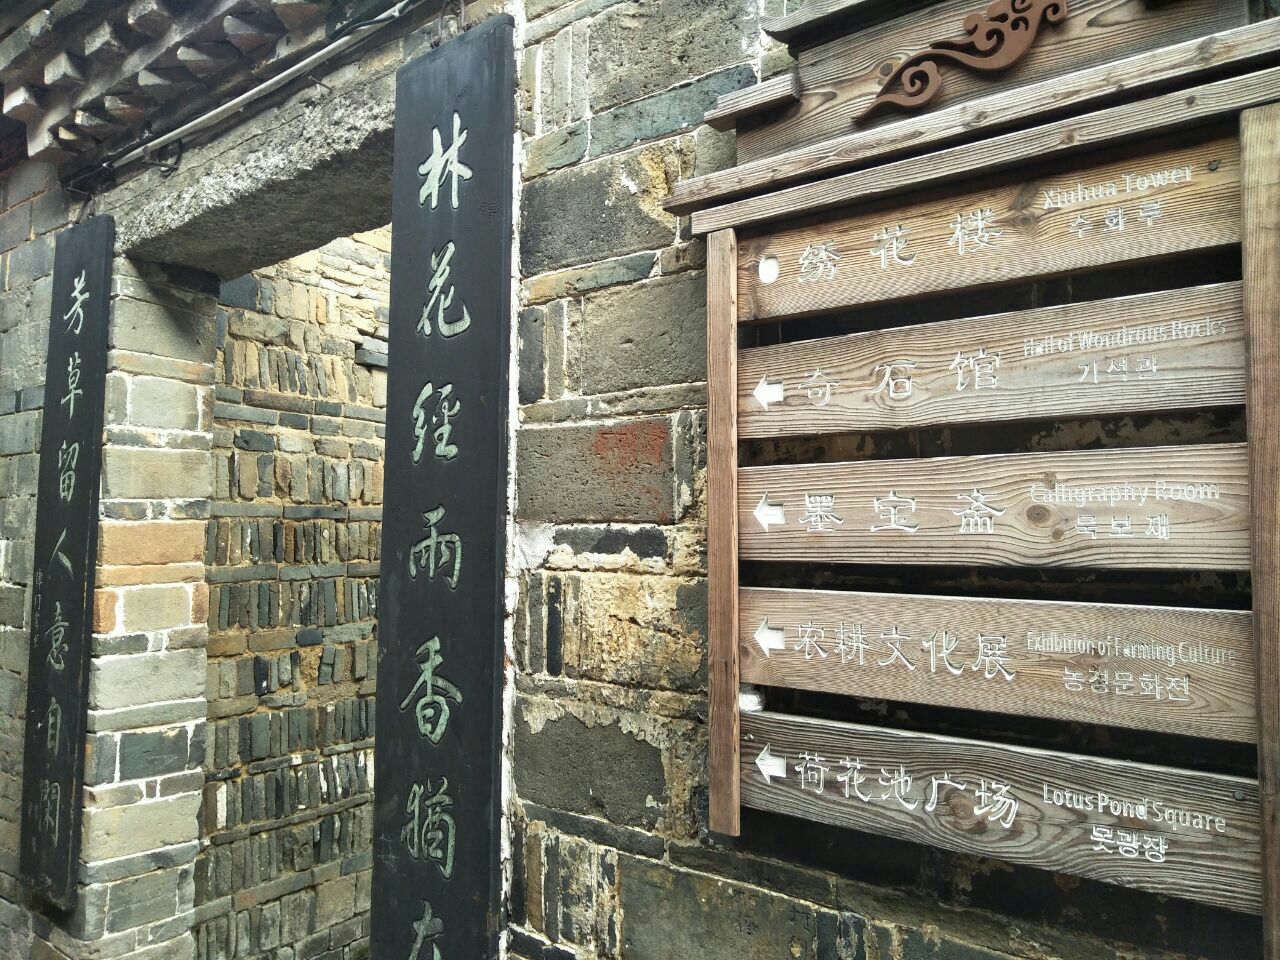 林花經雨香猶在
芳草留人意自閑
绣花楼
Xiuhua Tower
수화루
奇石馆
Hall of Wondrous Rocks
기석관
墨宝斋
Calligraphy Room
묵보재
农耕文化展
Exhibition of Farming Culture
농경문화전
荷花池广场
Lotus Pond Square
못광장